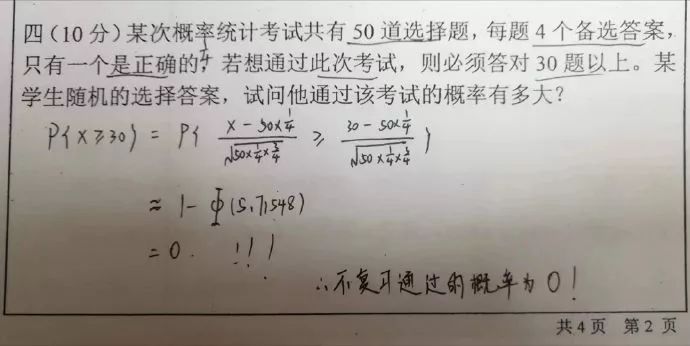 四(10分)某次概率统计考试共有50道选择题，每题4个备选答案，
只有一个是正确的。若想通过此次考试，则必须答对30题以上。某
1/4
学生随机的选择答案，试问他通过该考试的概率有多大？
P{X≥30} = P{ (X-50×1/4)/√(50×1/4×3/4) ≥ (30-50×1/4)/√(50×1/4×3/4) }
≈ 1-Φ(5.71548)
= 0. !!!
∴不复习通过的概率为0!
共4页 第2页